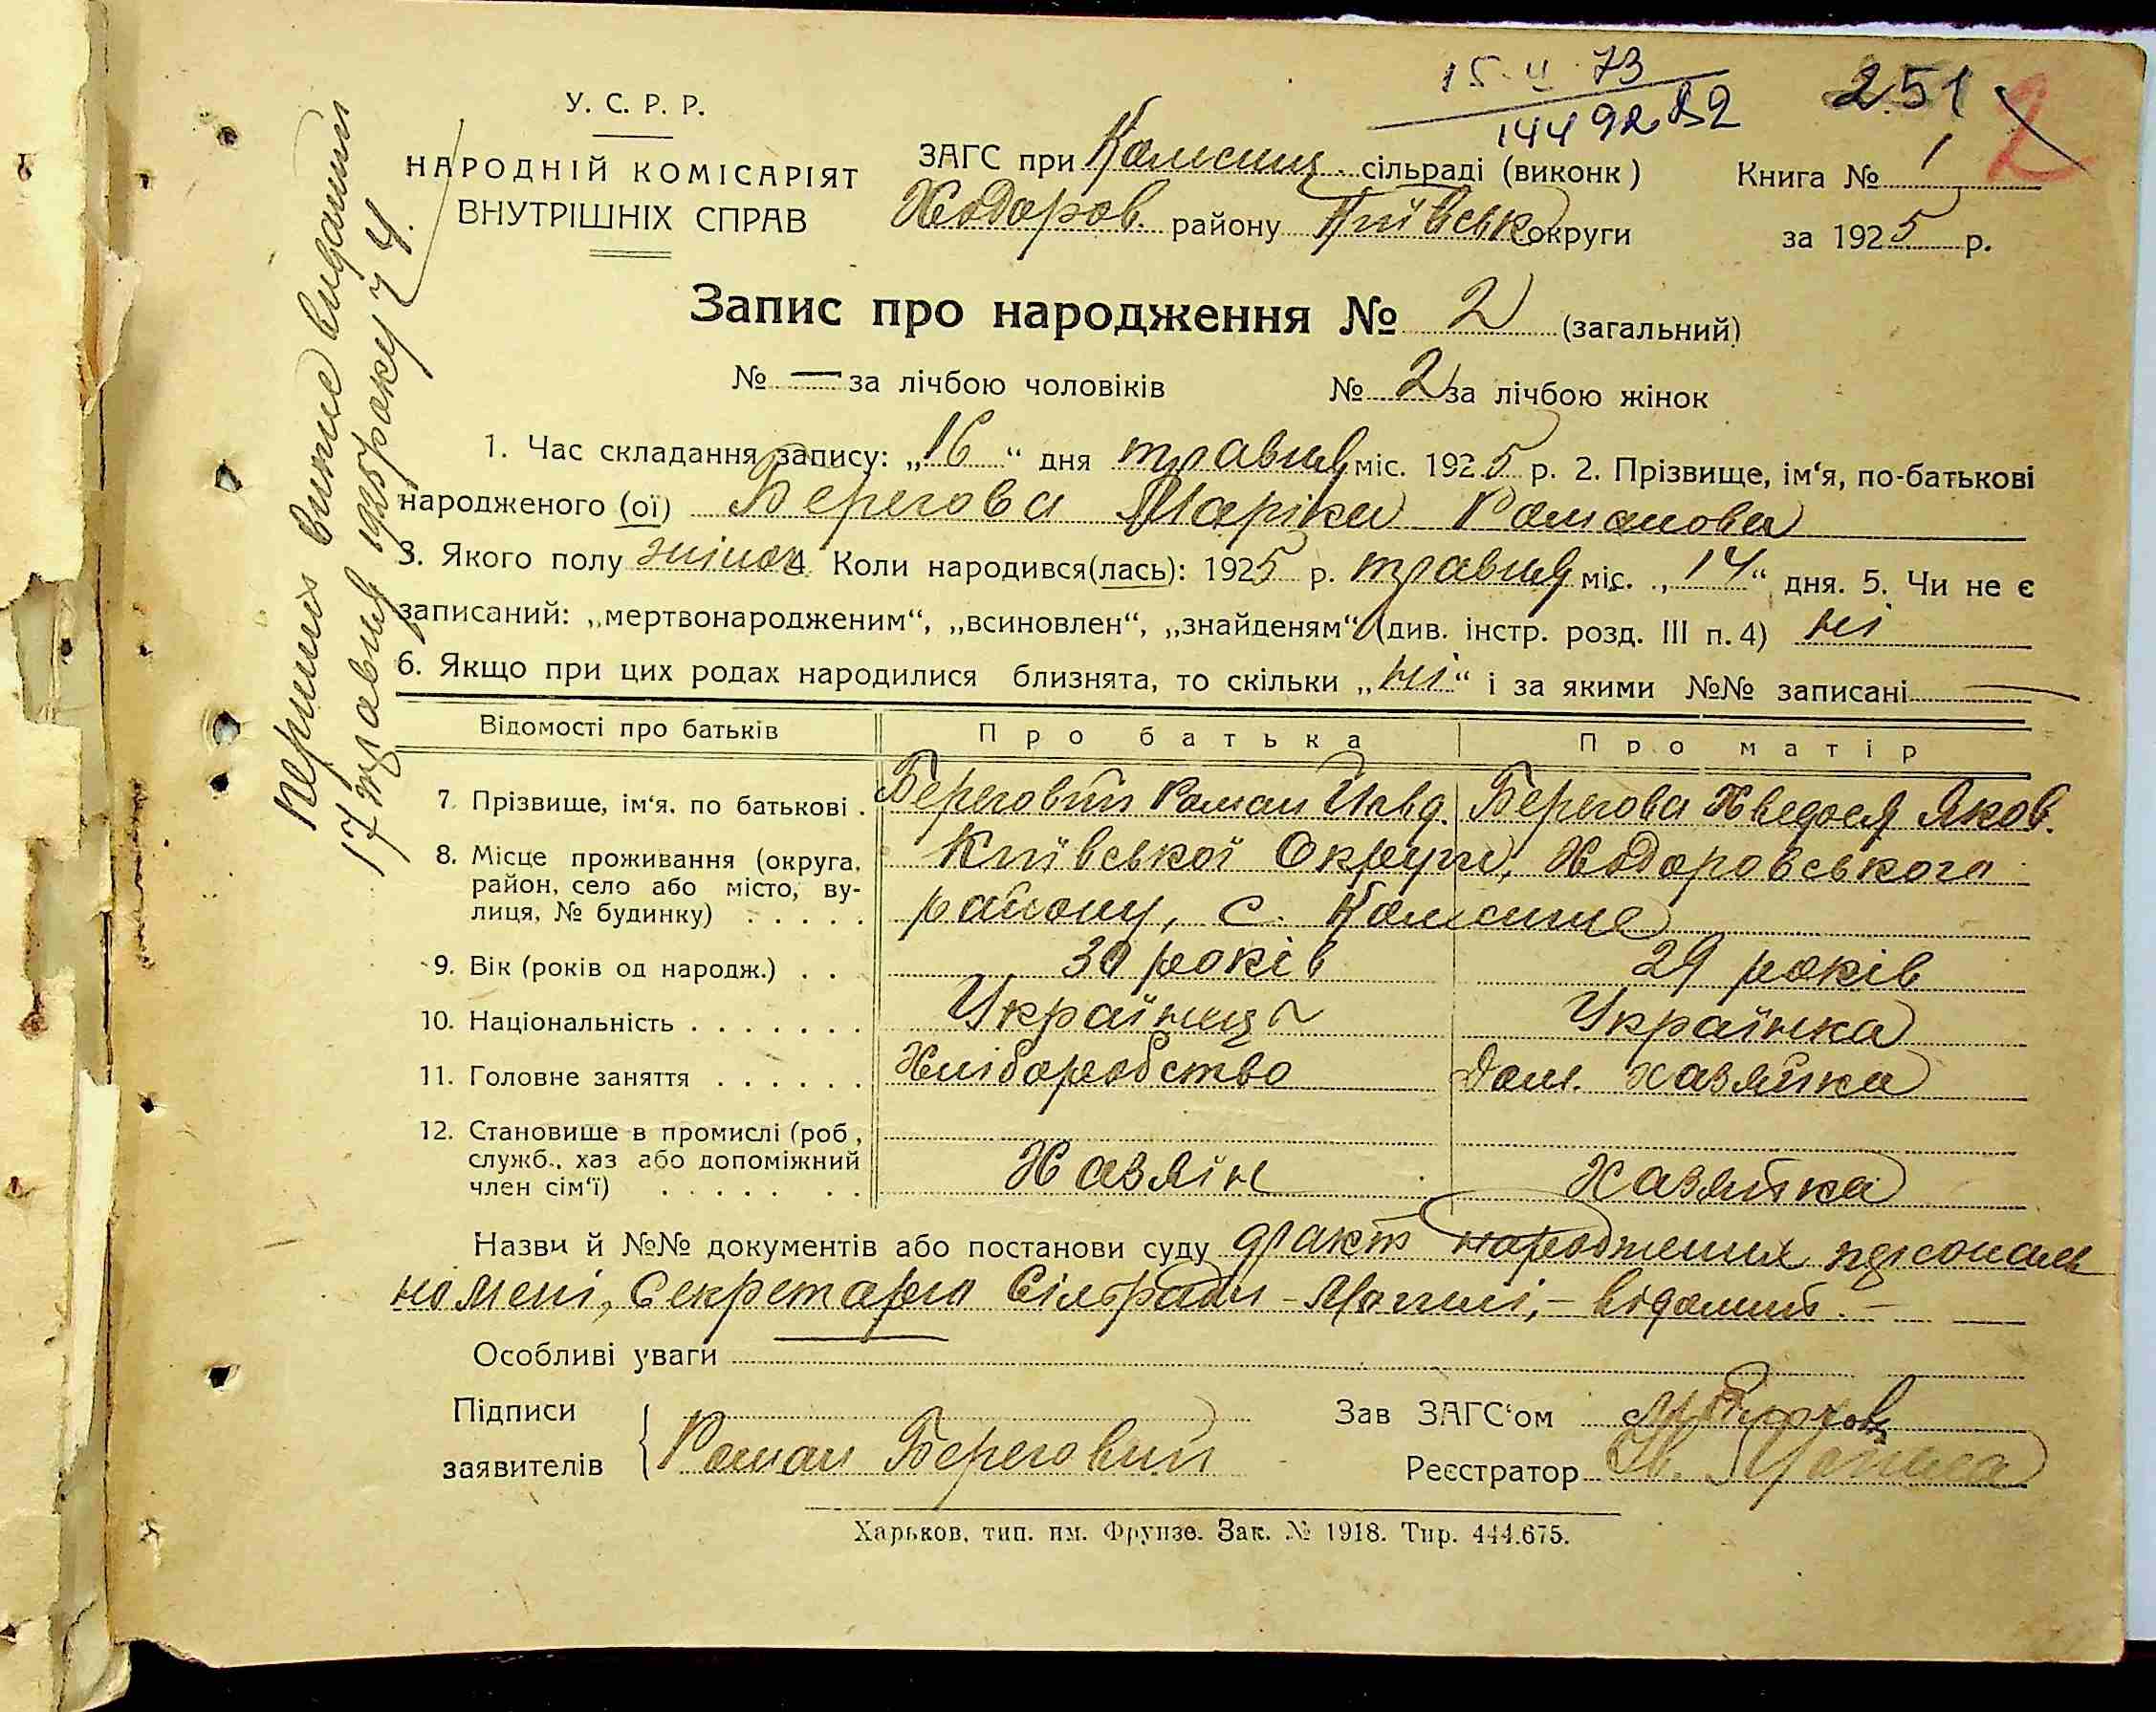 15 II 73
1449282
251
2
У. С. Р. Р.
НАРОДНІЙ КОМІСАРІЯТ
ВНУТРІШНІХ СПРАВ
ЗАГС при сільраді (виконк)
Ходоров. району Київськ округи
Книга № 1
за 1925 р.
Запис про народження № 2 (загальний)
№ — за лічбою чоловіків № 2 за лічбою жінок
1. Час складання запису: „16“ дня травня міс. 1925 р. 2. Прізвище, ім‘я, по-батькові
народженого (ої) Берегова Марія Романова
3. Якого полу жіноч. 4. Коли народився(лась): 1925 р. травня міс. „14“ дня. 5. Чи не є
записаний: „мертвонародженим“, „всиновлен“, „знайденям“ (див. інстр. розд. III п. 4) ні
6. Якщо при цих родах народилися близнята, то скільки „ні“ і за якими №№ записані —
Відомості про батьків Про батька Про матір
7. Прізвище, ім‘я. по батькові . Береговий Роман Берегова Хведося Яков.
8. Місце проживання (округа, район, село або місто, ву-
лиця, № будинку) . . . . .
Київської Округи, Ходоровського
району, с.
9. Вік (років од народж.) . . 30 років 29 років
10. Національність . . . . . . . Українець Українка
11. Головне заняття . . . . . . Хліборобство Дом. хазяйка
12. Становище в промислі (роб, служб., хаз або допоміжний
член сім‘ї) . . . . . . .
Хазяїн Хазяйка
Назви й №№ документів або постанови суду факт народження персональ
но мені, Секретарю Сільради - Моні, - відомий. -
Особливі уваги
Підписи
заявителів
Роман Береговий
Зав ЗАГС‘ом
Реєстратор
Харьков, тип. им. Фрунзе. Зак. № 1918. Тир. 444.675.
Перший випис виданий
17 травня 1925 року № 4.